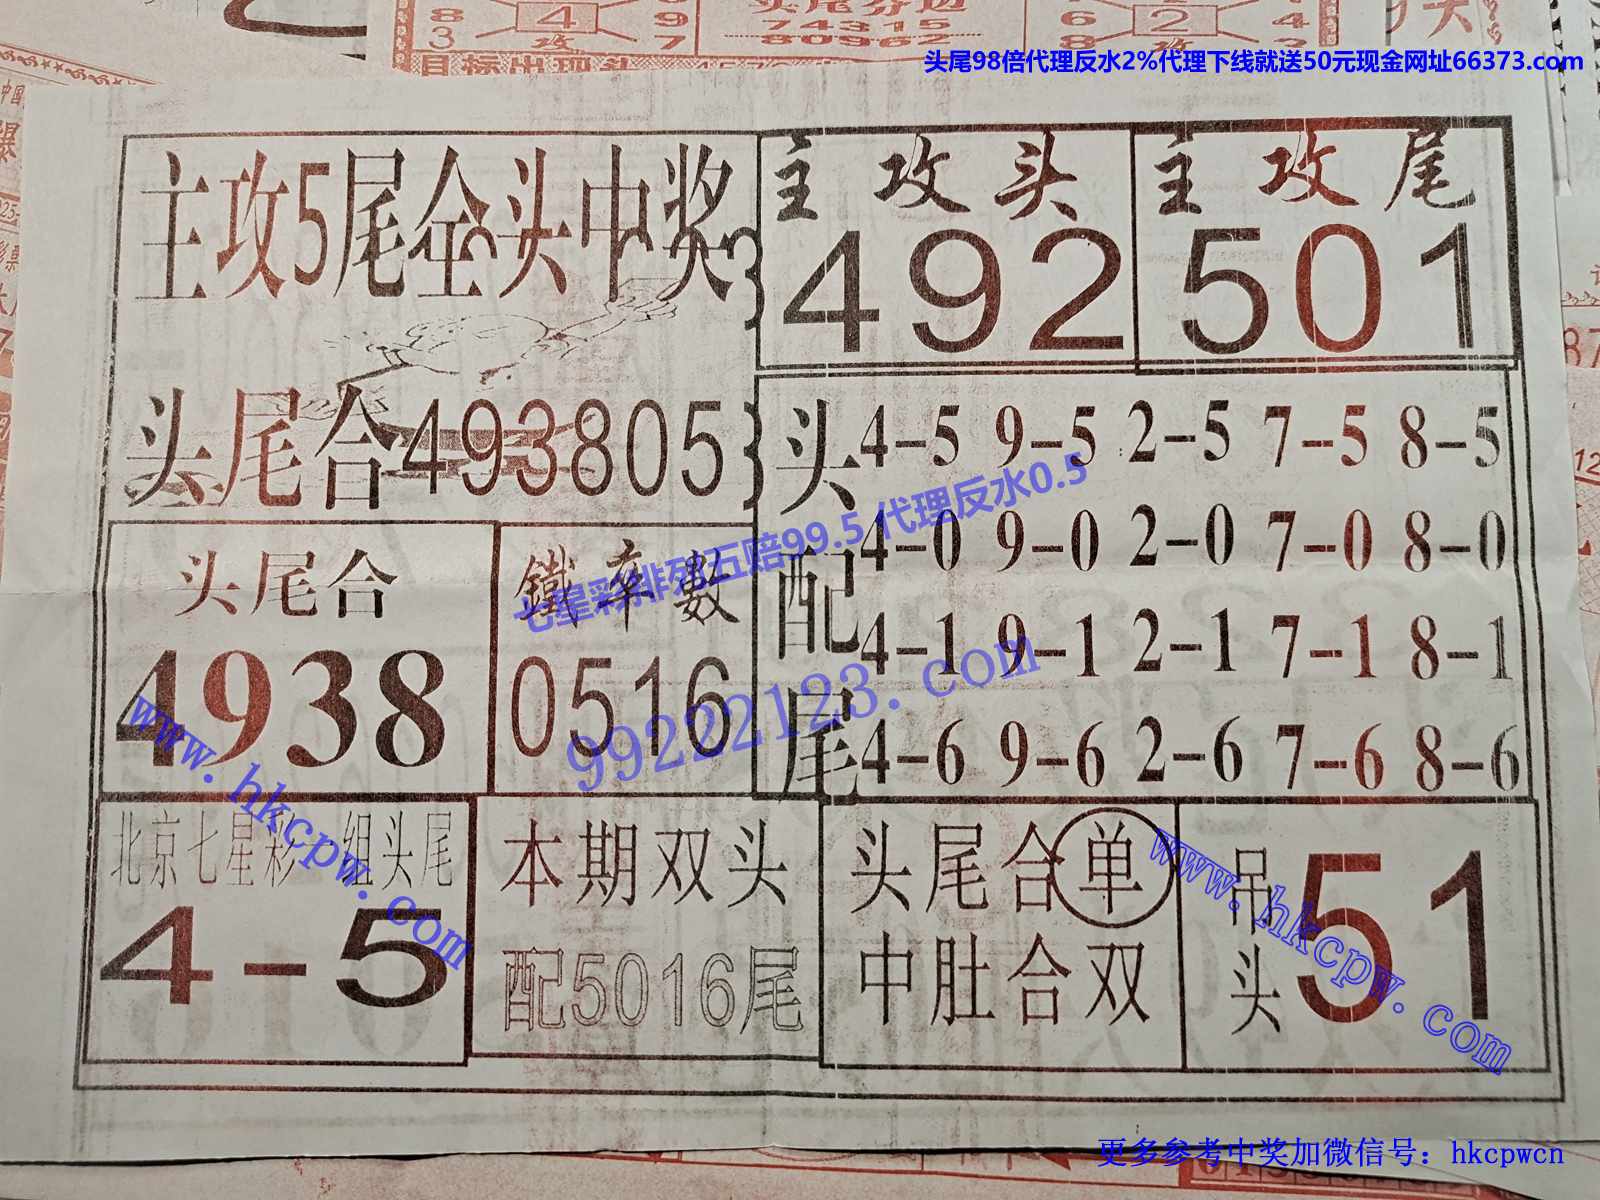 8 4 9
3 攻 7
头尾分边
74315
80962
6 2 4
8 攻 2
目标出现头
头尾98倍代理反水2%代理下线就送50元现金网址66373.com
主攻5尾全头中奖
主攻头
492
主攻尾
501
头尾合493805
头 4-5 9-5 2-5 7-5 8-5
4-0 9-0 2-0 7-0 8-0
配
4-1 9-1 2-1 7-1 8-1
尾 4-6 9-6 2-6 7-6 8-6
头尾合
4938
鐵率數
0516
七星彩排列五赔99.5 代理反水0.5
99222123.com
www.hkcpw.com
北京七星彩一组头尾
4-5
本期双头
配5016尾
头尾合单
中肚合双
吊头 51
www.hkcpw.com
更多参考中奖加微信号：hkcpwcn